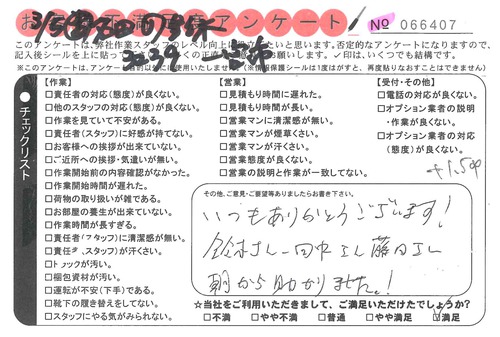 アンケート
№ 066407
このアンケートは、弊社作業スタッフのレベル向上に役立てたいと思います。否定的なアンケートになりますので、
※このアンケートは、
【作業】
□責任者の対応(態度)が良くない。
□他のスタッフの対応(態度)が良くない。
□作業を見ていて不安がある。
□責任者(スタッフ)に好感が持てない。
□お客様への挨拶が出来ていない。
□ご近所への挨拶・気遣いが無い。
□作業開始前の内容確認がなかった。
□作業開始時間が遅れた。
□荷物の取り扱いが雑である。
□お部屋の養生が出来ていない。
□作業時間が長すぎる。
□責任者(スタッフ)に清潔感が無い。
□責任者(スタッフ)が汗くさい。
□トラックが汚い。
□梱包資材が汚い。
□運転が不安(下手)である。
□靴下の履き替えをしてない。
□スタッフにやる気がみられない。
【営業】
□見積もり時間に遅れた。
□見積もり時間が長い。
□営業マンに清潔感が無い。
□営業マンが煙草くさい。
□営業マンが汗くさい。
□営業態度が良くない。
□営業の説明と作業が一致してない。
【受付・その他】
□電話の対応が良くない。
□オプション業者の説明
・作業が良くない。
□オプション業者の対応
(態度)が良くない。
●チェックリスト
その他、ご意見・ご要望等ありましたらお書き下さい。
いつもありがとうございます!
鈴木さん
朝から助かりました!
☆当社をご利用いただきまして、ご満足いただけたでしょうか?
□不満 □やや不満 □普通 □やや満足 □満足